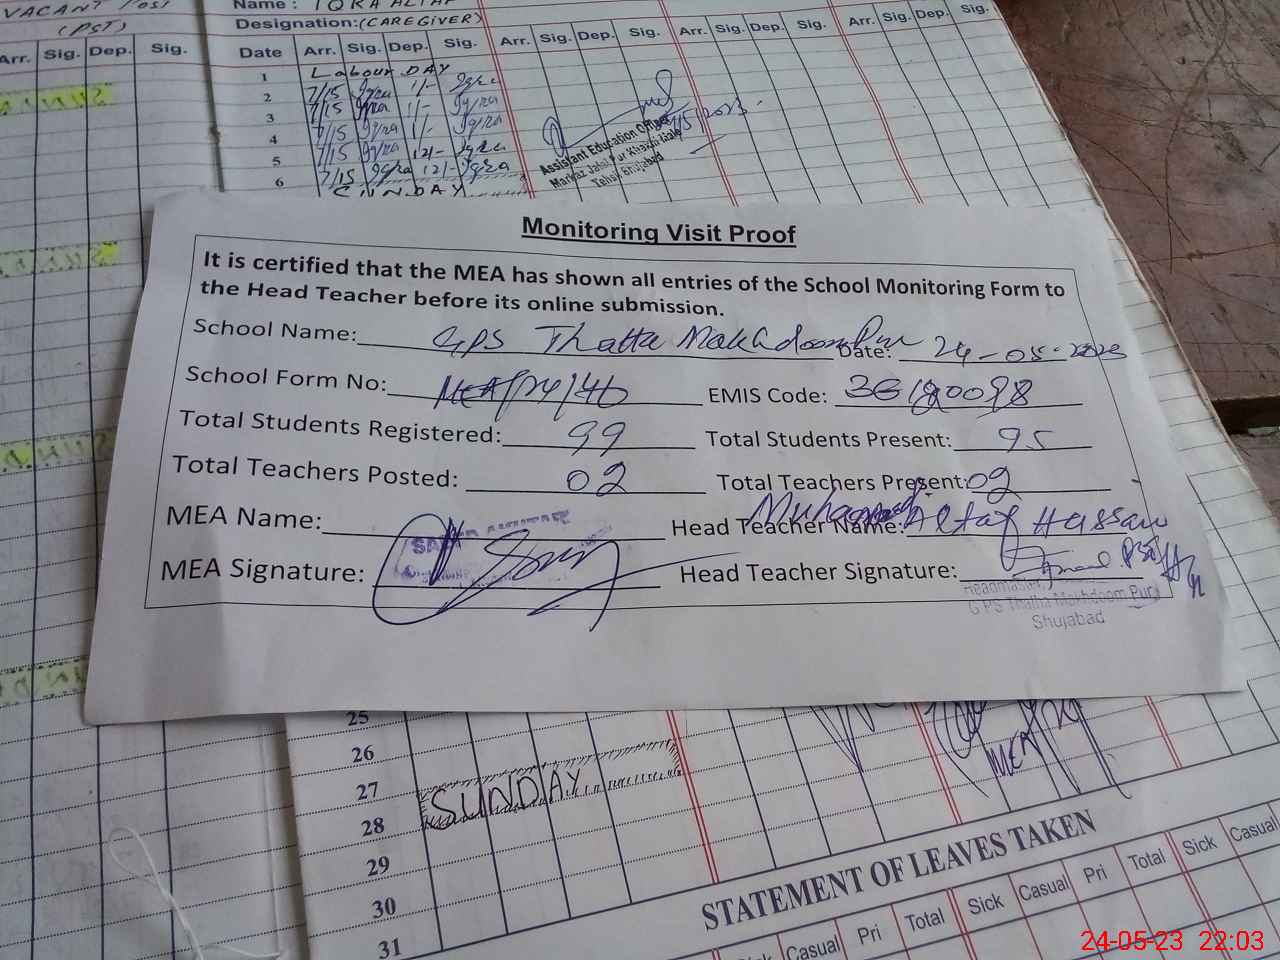 VACANT Post
(PST)
Arr. Sig. Dep. Sig.
Name :
Designation: (CAREGIVER)
Date Arr. Sig. Dep. Sig. Arr. Sig. Dep. Sig. Arr. Sig. Dep. Sig. Arr. Sig. Dep. Sig.
1 Labour DAY
2 7/15 1/-
3 7/15 1/-
4 7/15 1/-
5 7/15 12/-
6 7/15 12/-
SUNDAY
Assistant Education Officer
Markaz Jalal Pur
Tehsil Shujabad
Monitoring Visit Proof
It is certified that the MEA has shown all entries of the School Monitoring Form to
the Head Teacher before its online submission.
School Name: GPS Thatta Makhdoom Pur Date: 24-05-2023
School Form No: EMIS Code:
Total Students Registered: 99 Total Students Present: 95
Total Teachers Posted: 02 Total Teachers Present: 02
MEA Name: Head Teacher Name: Muhammad Altaf Hassan
MEA Signature: Head Teacher Signature:
Headmaster
G PS Thatha Makhdoom Pur
Shujabad
25
26
27
28 SUNDAY
29
30
31
MEA
STATEMENT OF LEAVES TAKEN
Sick Casual Pri Total Sick Casual Pri Total Sick Casual
24-05-23 22:03